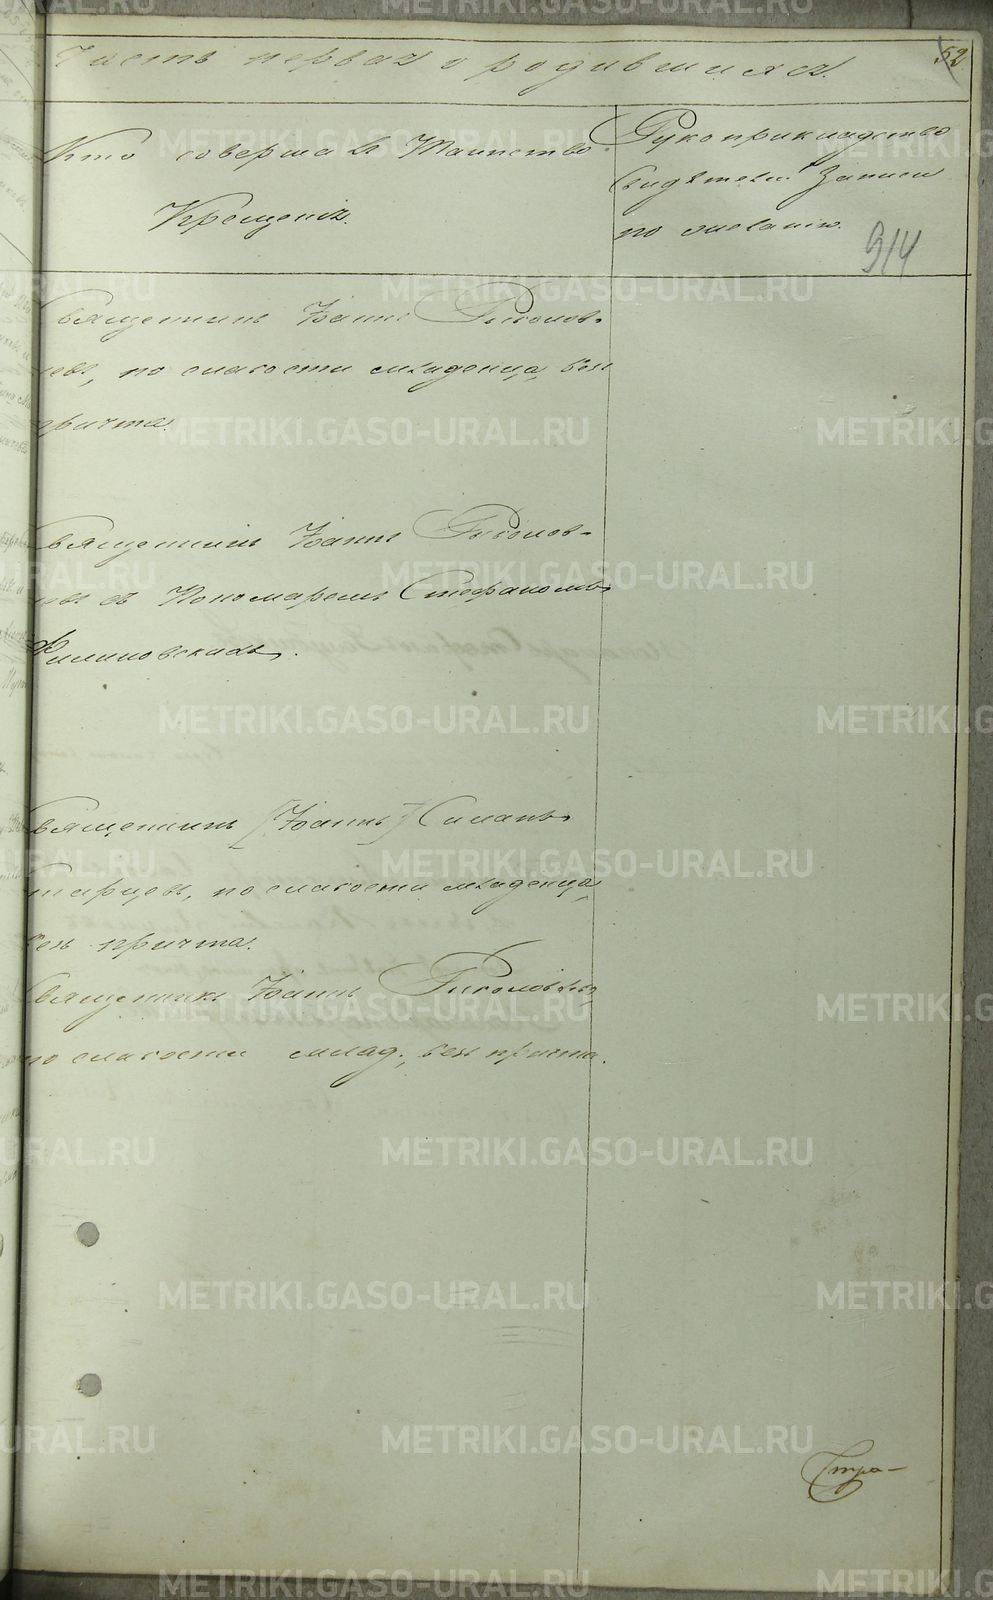 Часть первая о родившихся.
52
Кто совершалъ Таинство
Крещенія.
Рукоприкладство
свидѣтелей записи
по желанію.
914
Священникъ Іоаннъ
по слабости младенца, безъ
причта.
Священникъ Іоаннъ
съ Пономаремъ Стефаномъ
Филиповскимъ.
Священникъ [Іоаннъ]
по слабости младенца,
безъ причта.
Священникъ Іоаннъ
по слабости млад., безъ причта.
METRIKI.GASO-URAL.RU